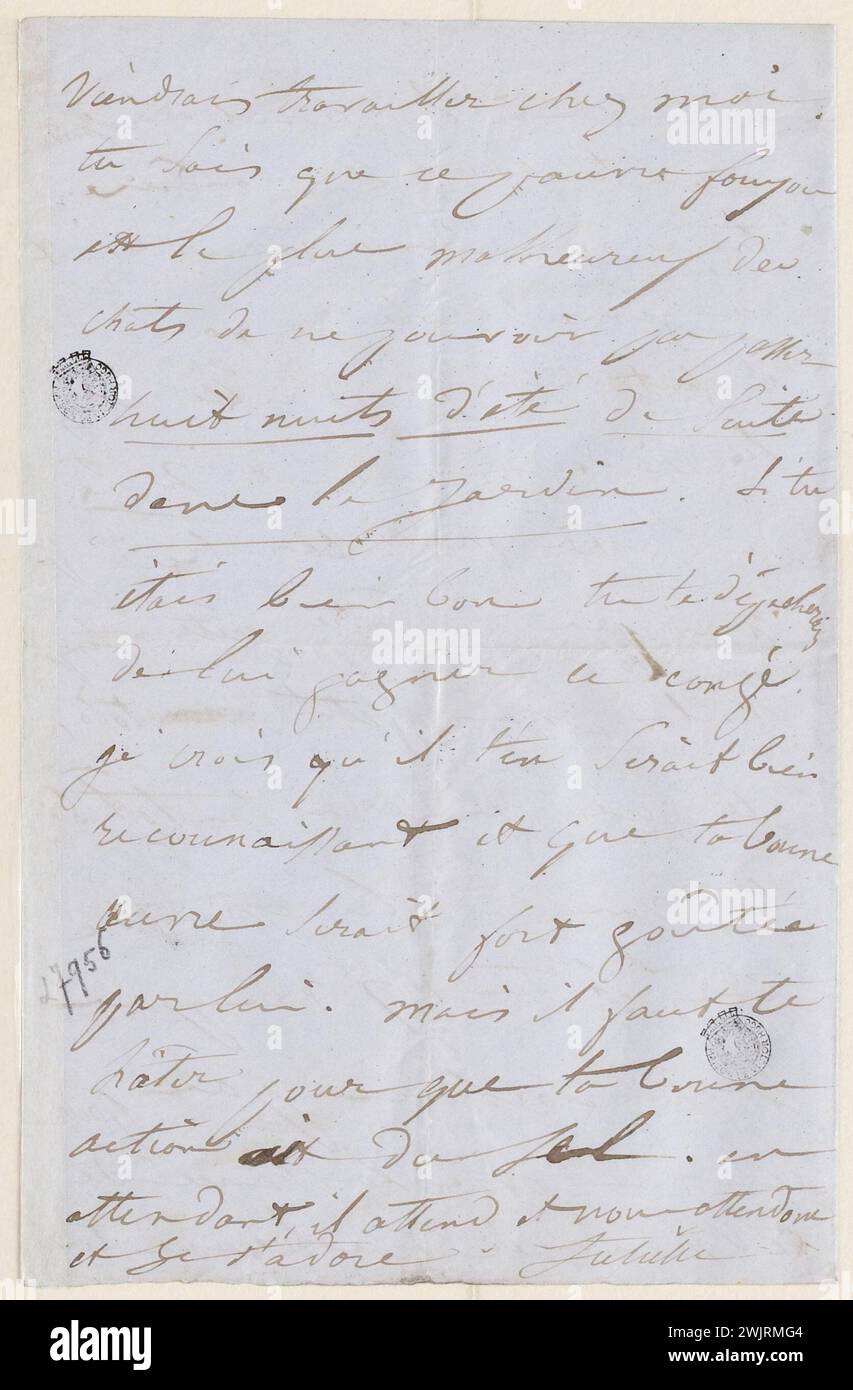 viendrais travailler chez moi.
tu sais que ce pauvre fouyou
est le plus malheureux des
chats de ne pouvoir pas passer
huit nuits d'été de suite
dans le jardin. Si tu
étais bien bon tu te dépêcherais
de lui gagner ce congé.
je crois qu'il t'en serait bien
reconnaissant et que ta bonne
œuvre serait fort goûtée
par lui. mais il faut te
hâter pour que ta bonne
action ait du sel. en
attendant, il attend et nous attendons
et je t'adore. Juliette
27956
alamy
alamy
Image ID: 2WJRMG4
www.alamy.com